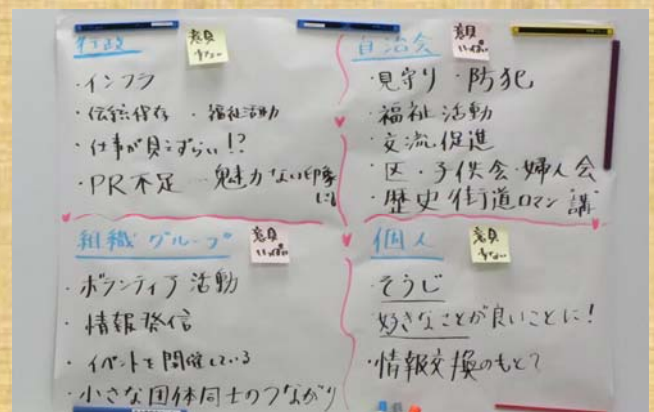 行政
意見
少ない
・インフラ
・伝統保存 ・福祉活動
・仕事が見えずらい!?
・PR不足…魅力ない印象
自治会
意見
いっぱい
・見守り ・防犯
・福祉活動
・交流促進
・区・子供会・婦人会
・歴史街道ロマン 講
組織グループ
意見
いっぱい
・ボランティア活動
・情報発信
・イベントを開催している
・小さな団体同士のつながり
個人
意見
少ない
・そうじ
・好きなことが良いことに!
・情報交換のもと?